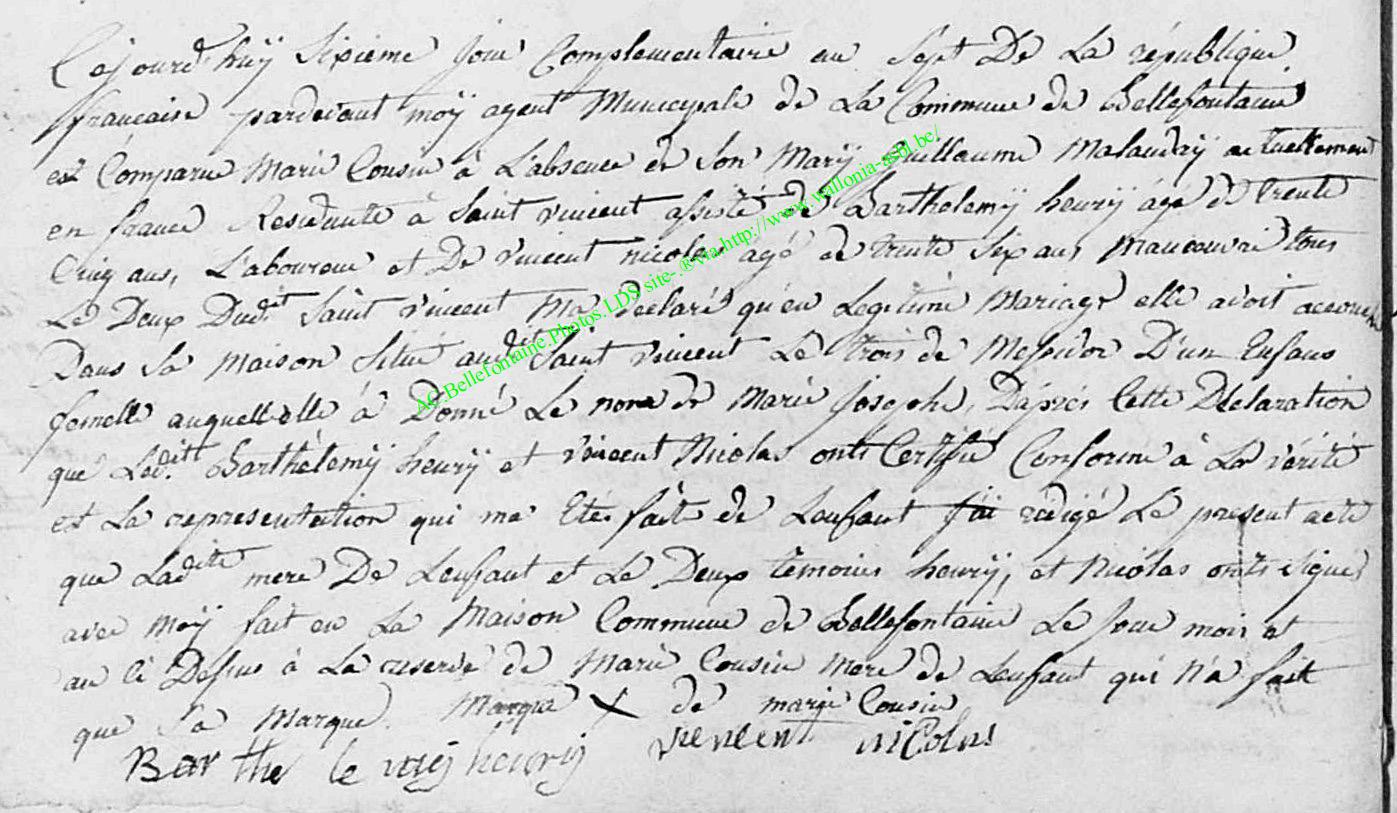 Cejourd'huÿ Sixieme Jour Complementaire an Sept De La république
francaise pardevant moÿ agent Municipale de La Commune de Bellefontaine
est Comparue Marie Cousin à L'absence de Son Marÿ Guillaume Malaudaÿ actuellement
en france Residante à Saint vincent assisté de Barthelemÿ henrÿ âgé de trente
Cinq ans, L'aboureur et De vincent nicolas agé de trente Six ans Maneouvrai tous
Le Deux Dudit Saint vincent Ma declaré qu'en Legitime Mariage elle avoit accouché
Dans Sa Maison Situé audit Saint vincent Le trois de Messidor D'un Enfans
femelle auquell elle à Donné Le nom de Marie Joseph, D'apres Cette Déclaration
que Ledit Barthélemÿ henrÿ et vincent Nicolas onts Certifié Conforme à La vérité
et La representation qui ma Etés fait de Lenfant J'ai rédigé Le present acte
que Ladite mere De Lenfant et Le Deux temoins henrÿ, et Nicolas onts signés
avec Moÿ fait en La Maison Commune de Bellefontaine Le Jour mois et
an Ci Dessus à La reserve de Marie Cousin mere de Lenfant qui n'à fait
que Sa Marque. Marque X de marie Cousin
Barthe le mij henrij vincent nicolas
AC.Bellefontaine.Photos.LDS site-®via.http://www.wallonia-asbl.be/